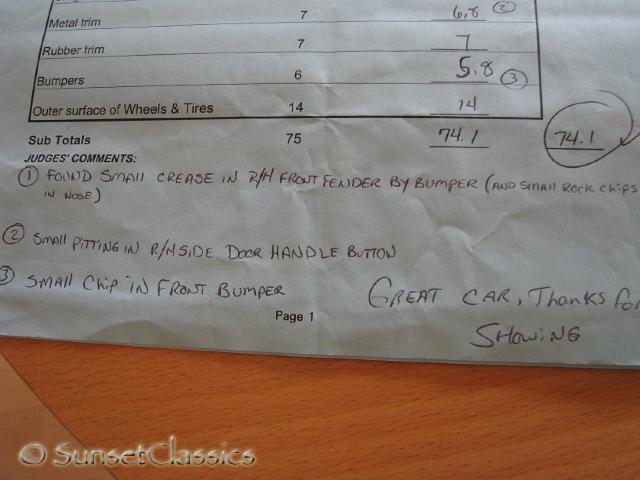 Metal trim 7 6.8 ②
Rubber trim 7 7
Bumpers 6 5.8 ③
Outer surface of Wheels & Tires 14 14
Sub Totals 75 74.1 74.1
JUDGES' COMMENTS:
① FOUND SMALL CREASE IN R/H FRONT FENDER BY BUMPER (AND SMALL ROCK CHIPS
IN NOSE)
② SMALL PITTING IN R/H SIDE DOOR HANDLE BUTTON
③ SMALL CHIP IN FRONT BUMPER
GREAT CAR, THANKS FOR
SHOWING
Page 1
© SunsetClassics